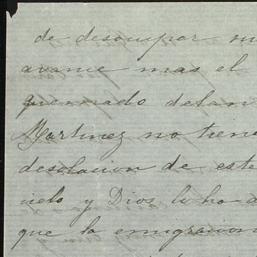 de desocupar su
avance mas el
quemado delan
Martinez no tiene
desolacion de este
cielo y Dios lo ha d
que la emigracion